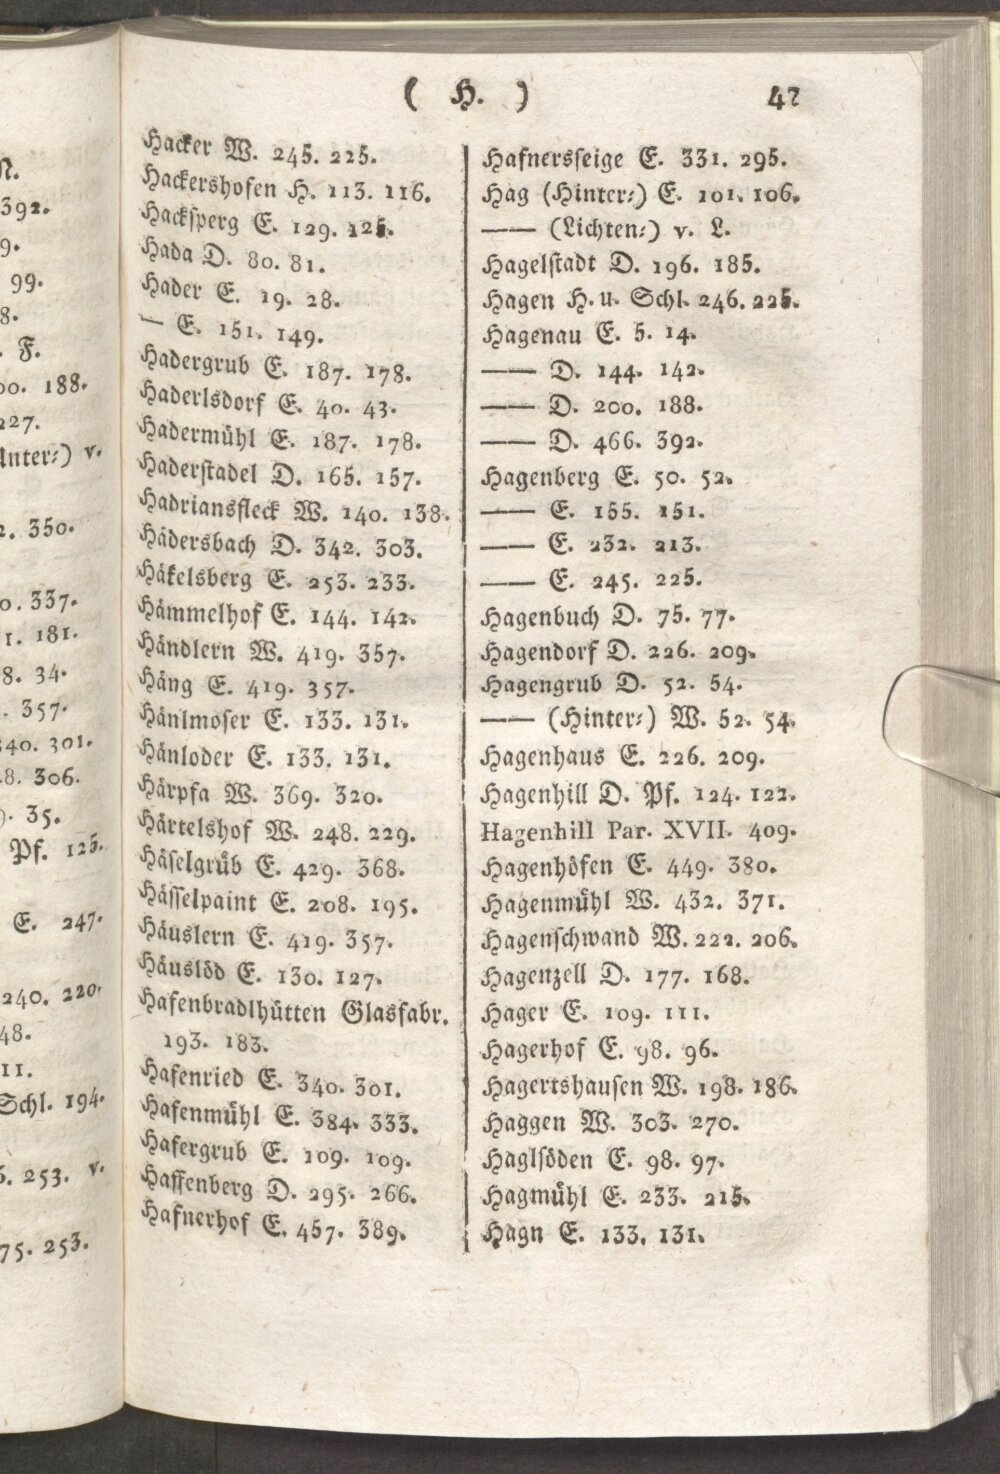 N.
392.
9.
99.
8.
. F.
00. 188.
227.
Unter⸗) v.
2. 350.
0. 337.
1. 181.
8. 34.
. 357.
340. 301.
8. 306.
9. 35.
Pf. 125.
E. 247.
240. 220.
48.
11.
Schl. 194.
6. 253. v.
75. 253.
( H. ) 47
Hacker W. 245. 225.
Hackershofen H. 113. 116.
Hacksperg E. 129. 125.
Hada D. 80. 81.
Hader E. 19. 28.
— E. 151. 149.
Hadergrub E. 187. 178.
Haderlsdorf E. 40. 43.
Hadermühl E. 187. 178.
Haderstadel D. 165. 157.
Hadriansfleck W. 140. 138.
Hädersbach D. 342. 303.
Häkelsberg E. 253. 233.
Hämmelhof E. 144. 142.
Händlern W. 419. 357.
Häng E. 419. 357.
Hänlmoser E. 133. 131.
Hänloder E. 133. 131.
Härpfa W. 369. 320.
Härtelshof W. 248. 229.
Häselgrüb E. 429. 368.
Hässelpaint E. 208. 195.
Häuslern E. 419. 357.
Häuslöd E. 130. 127.
Hafenbradlhütten Glasfabr.
193. 183.
Hafenried E. 340. 301.
Hafenmühl E. 384. 333.
Hafergrub E. 109. 109.
Haffenberg D. 295. 266.
Hafnerhof E. 457. 389.
Hafnersseige E. 331. 295.
Hag (Hinter⸗) E. 101. 106.
—— (Lichten⸗) v. L.
Hagelstadt D. 196. 185.
Hagen H. u. Schl. 246. 225.
Hagenau E. 5. 14.
—— D. 144. 142.
—— D. 200. 188.
—— D. 466. 392.
Hagenberg E. 50. 52.
—— E. 155. 151.
—— E. 232. 213.
—— E. 245. 225.
Hagenbuch D. 75. 77.
Hagendorf D. 226. 209.
Hagengrub D. 52. 54.
—— (Hinter⸗) W. 52. 54.
Hagenhaus E. 226. 209.
Hagenhill D. Pf. 124. 122.
Hagenhill Par. XVII. 409.
Hagenhöfen E. 449. 380.
Hagenmühl W. 432. 371.
Hagenschwand W. 222. 206.
Hagenzell D. 177. 168.
Hager E. 109. 111.
Hagerhof E. 98. 96.
Hagertshausen W. 198. 186.
Haggen W. 303. 270.
Haglsöden E. 98. 97.
Hagmühl E. 233. 215.
Hagn E. 133. 131.